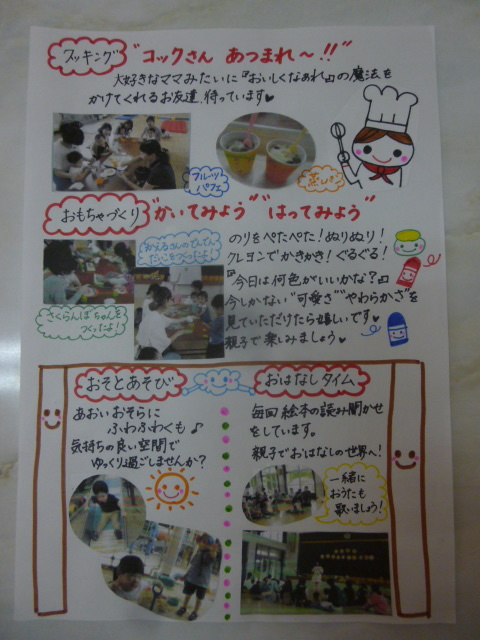 クッキング "コックさん あつまれ〜!!"
大好きなママみたいに『おいしくなぁれ』の魔法を
かけてくれるお友達、待っています♥
フルーツ
パフェ
蒸しパン
おもちゃづくり "かいてみよう" "はってみよう"
かえるさんのでんでん
だいこをつくったよ!
さくらんぼちゃんを
つくったよ!
のりをぺたぺた!ぬりぬり!
クレヨンでかきかき!ぐるぐる!
『今日は何色がいいかな?』
今しかない"可愛さ""やわらかさ"を
見ていただけたら嬉しいです♥
親子で楽しみましょう♥
おそとあそび
あおい おそらに
ふわふわくも♪
気持ちの良い空間で
ゆっくり過ごしませんか?
おはなしタイム
毎回 絵本の読み聞かせ
をしています。
親子でおはなしの世界へ!
一緒に
おうたも
歌いましょう!